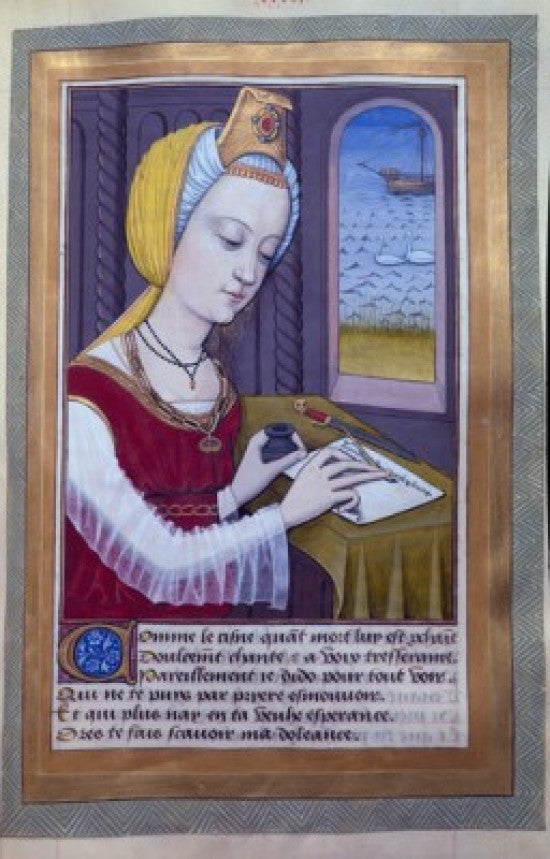 Comme le cisne quāt mort luy est pchaie
Doulcemt chante & a voix tresseraine.
Pareillement ie dido pour tout voir
Qui ne te puys par pryere esmouuoir.
Et qui plus nay en ta esperance.
Ores te fais scauoir ma doleance.